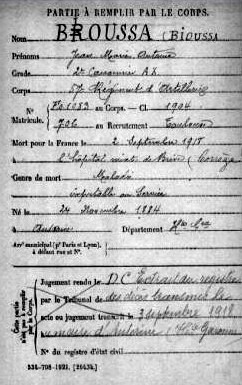 PARTIE À REMPLIR PAR LE CORPS.
Nom BROUSSA (BIOUSSA
Prénoms Jean Marie Antoine
Grade 2e Canonnier
57e Régiment d'Artillerie
N° 1083 au Corps. — Cl. 1904
Matricule.
706 au Recrutement Toulouse
Mort pour la France le 2 Septembre 1918
à l'hôpital mixte de Brive (Corrèze
Genre de mort Maladie
imputable au Service
Né le 24 Novembre 1884
à Auterive Département Hte Gne
Arr' municipal (pr Paris et Lyon),
à défaut rue et N°.
Cette partie
n'est pas à remplir
par le Corps.
Jugement rendu le DC Extrait du registre
par le Tribunal de des décès transmis le
acte ou jugement transcrit le 3 septembre 1918
au maire d'Auterive (Hte Garonne
N° du registre d'état civil
534-708-1921. [26434.]